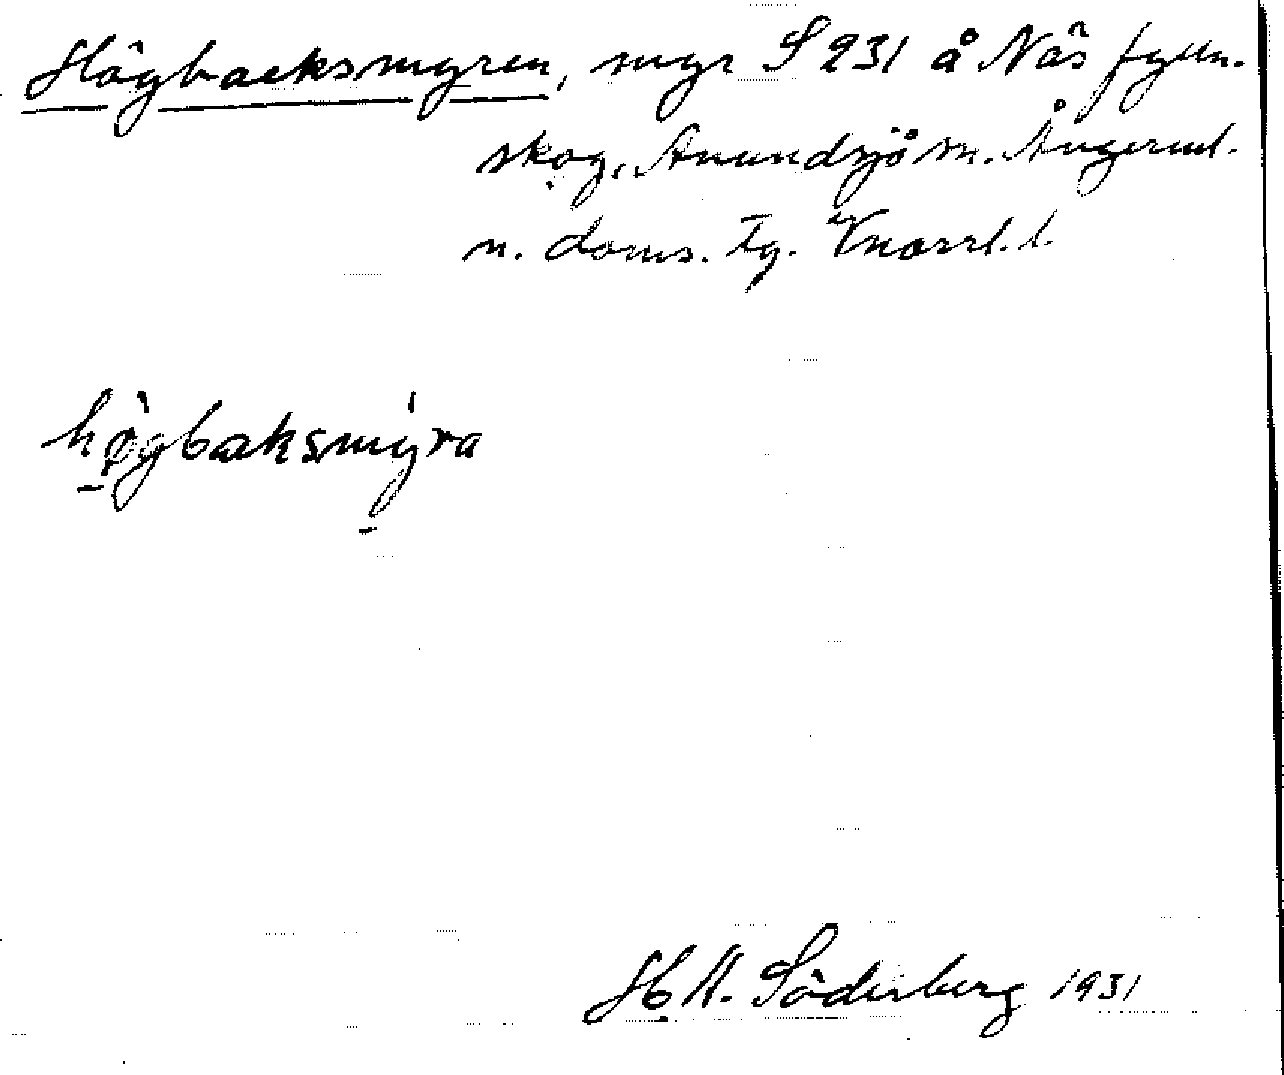 Högbacksmyren, myr S 231 å Näs fyun.
skog, Anundsjö sn. Ångerml.
n. doms. Tg. Vnorrl. l.
høgbaksmyra
H. A. Söderberg 1931